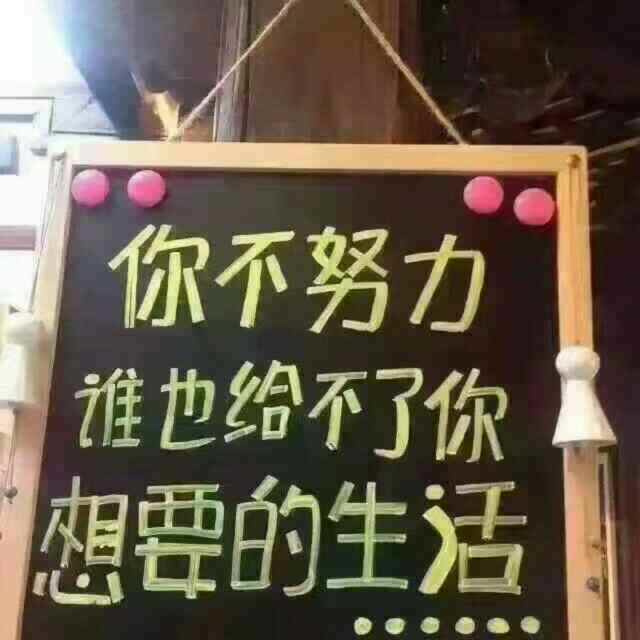 你不努力
谁也给不了你
想要的生活
......